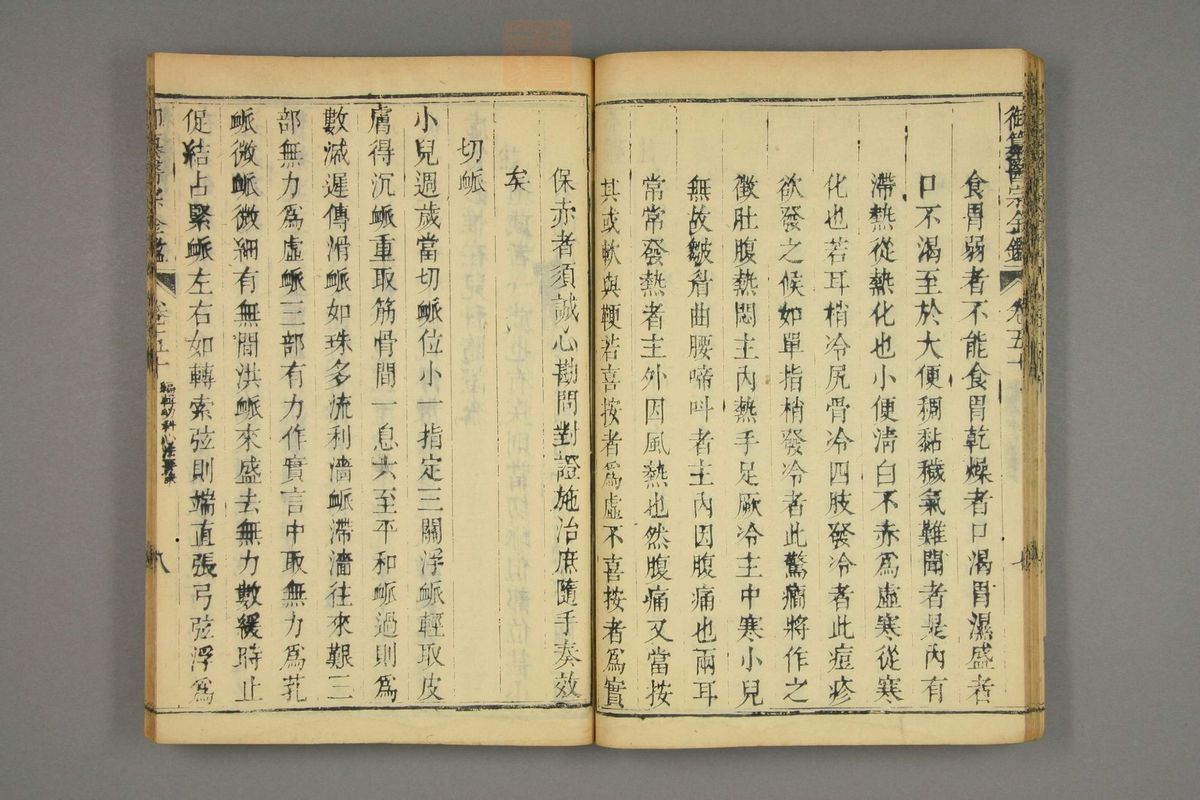 御纂醫宗金鑑 卷五十
食胃弱者不能食胃乾燥者口渴胃濕盛者
口不渴至於大便稠黏穢氣難聞者是內有
滯熱從熱化也小便淸白不赤爲虛寒從寒
化也若耳梢冷尻骨冷四肢發冷者此痘疹
欲發之候如單指梢發冷者此驚癎將作之
徵肚腹熱悶主內熱手足厥冷主中寒小兒
無故皺眉曲腰啼叫者主內因腹痛也兩耳
常常發熱者主外因風熱也然腹痛又當按
其或軟與鞕若喜按者爲虛不喜按者爲實
保赤者須誠心勘問對證施治庶隨手奏效
矣
切脈
小兒週歲當切脈位小一指定三關浮脈輕取皮
膚得沉脈重取筋骨間一息六至平和脈過則爲
數減遲傳滑脈如珠多流利濇脈滯濇往來艱三
部無力爲虛脈三部有力作實言中取無力爲芤
脈微脈微細有無間洪脈來盛去無力數緩時止
促結占緊脈左右如轉索弦則端直張弓弦浮爲
卷五十 編輯幼科心法要訣 八